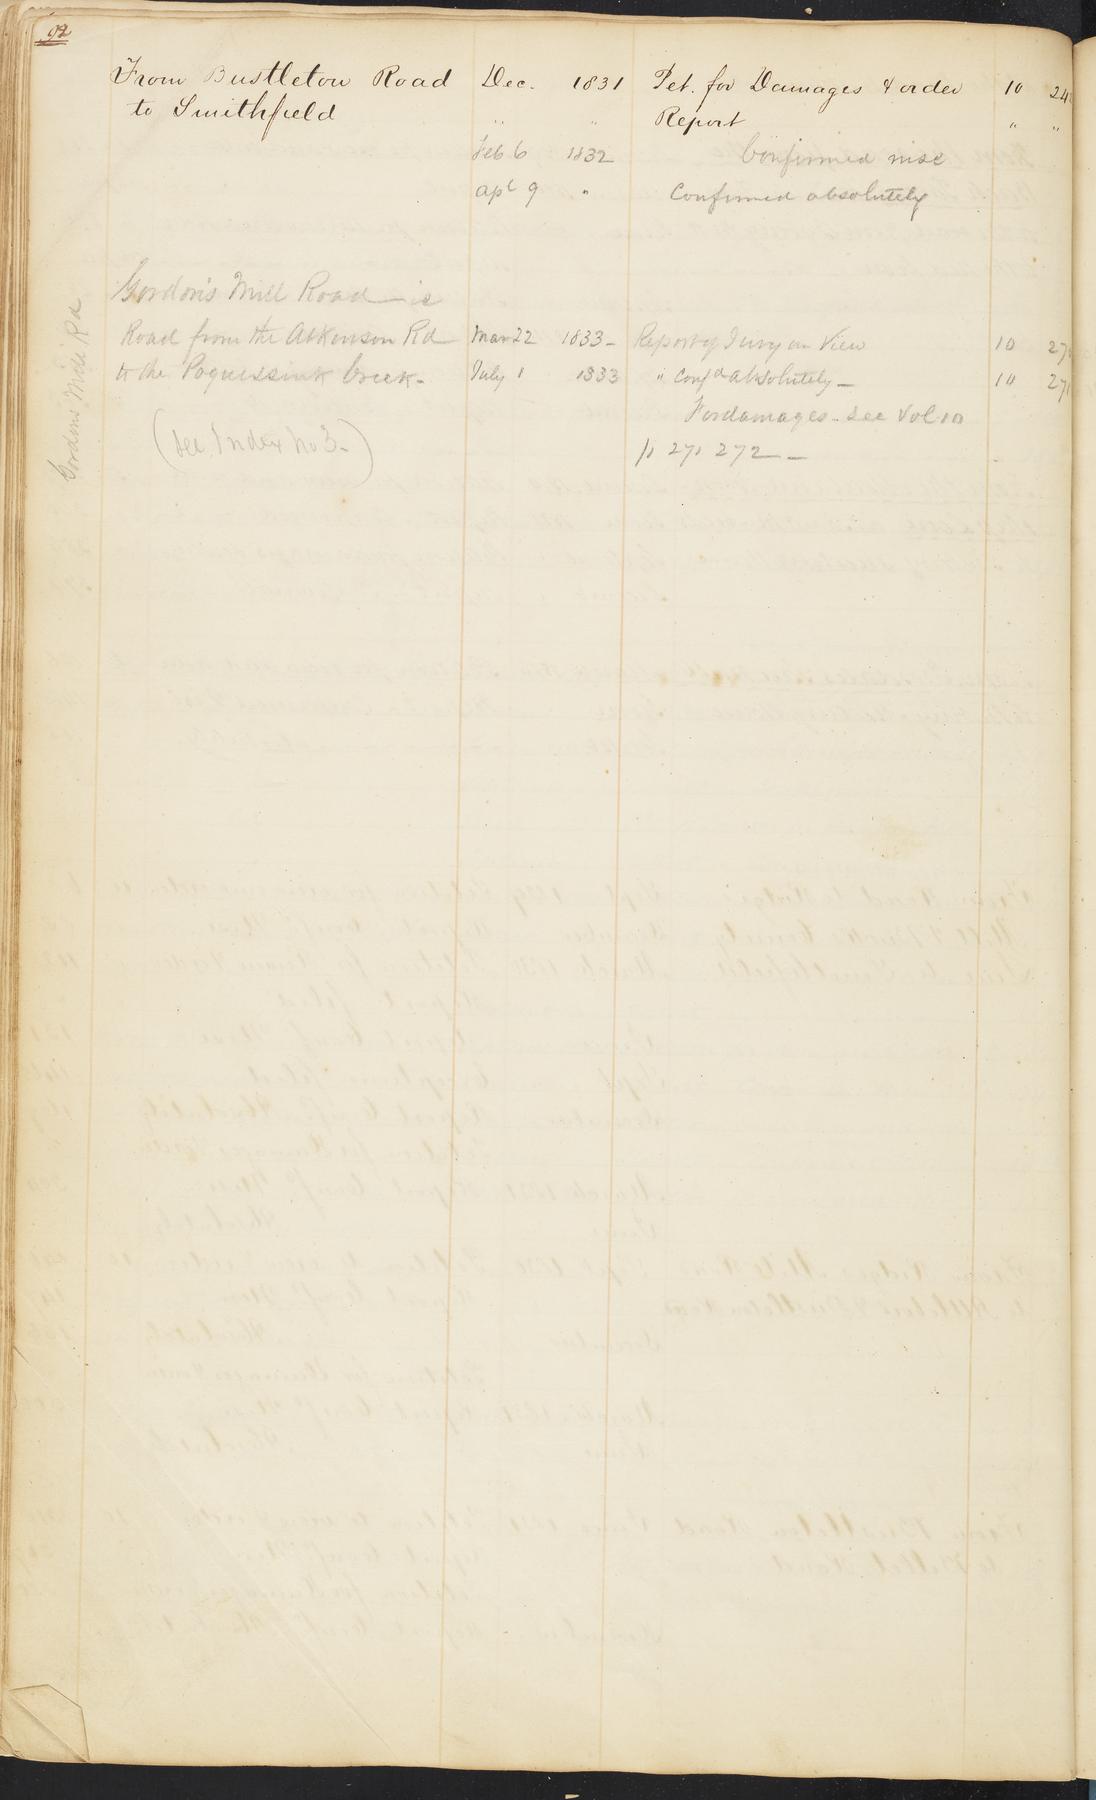 92
From Bustleton Road Dec. 1831 Pet. for Damages & order 10 24
to Smithfield " " Report " "
Feb 6 1832 Confirmed nise
Apl 9 " Confirmed absolutely
Gordon's Mill Road is
Road from the Atkinson Rd Mar 22 1833 - Report of Jury on View 10 27
to the Poquessink Creek - July 1 1833 " Confd absolutely - 10 271
For damages - see Vol 10
(see Index No 3 -) p 271 272 -
Gordons Mill Rd